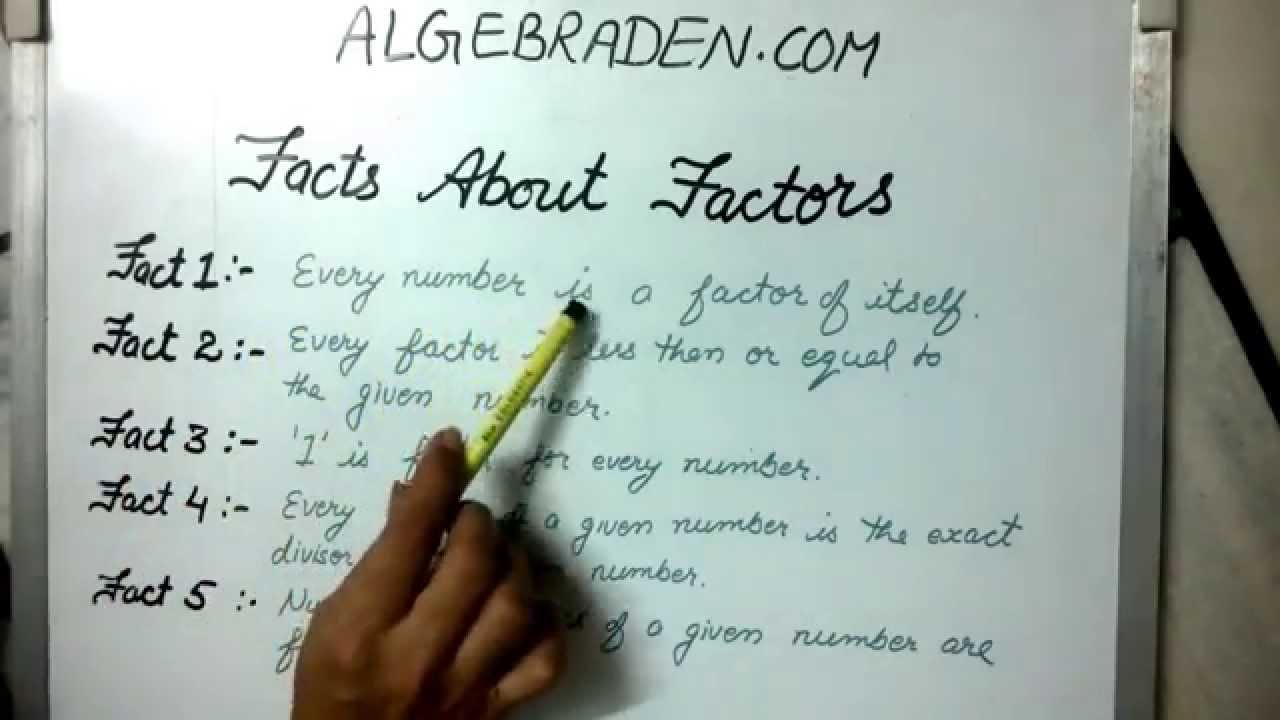 ALGEBRADEN.COM
Facts About Factors
Fact 1:- Every number is a factor of itself.
Fact 2:- Every factor less then or equal to
the given number.
Fact 3:- '1' is for every number.
Fact 4:- Every of a given number is the exact
divisor number.
Fact 5:- of a given number are